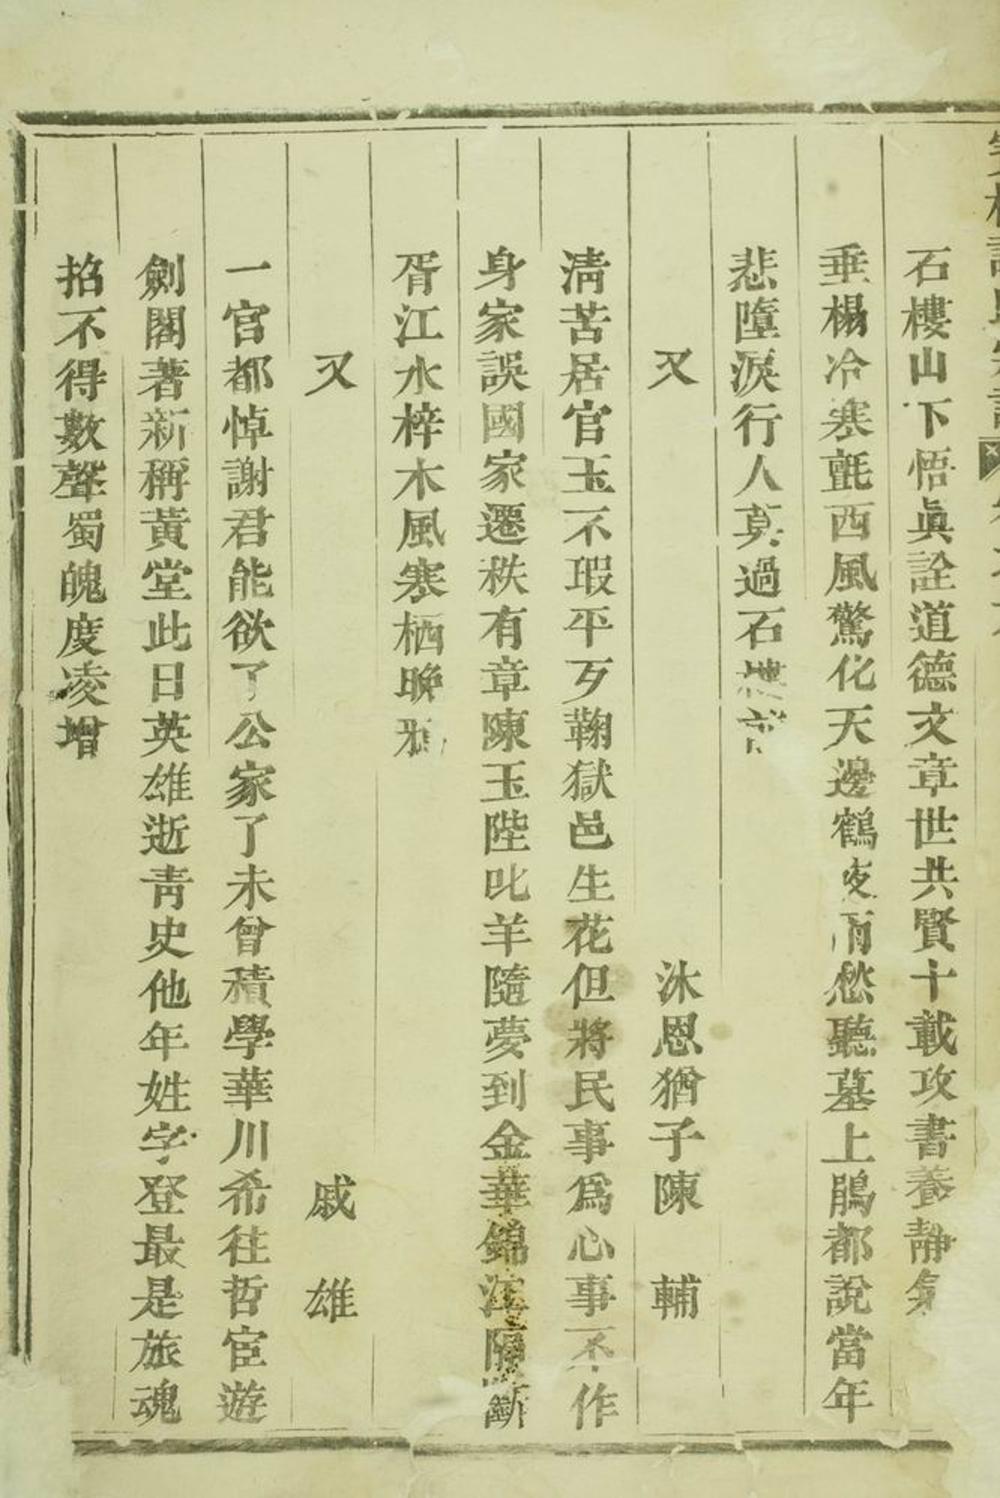 石樓山下悟眞詮道德文章世共賢十載攻書養靜氣
垂楊冷寒氈西風驚化天邊鶴夜雨愁聽墓上鵑都說當年
悲墮淚行人莫過石樓前
又 沐恩猶子陳輔
淸苦居官玉不瑕平歹鞠獄邑生花但將民事爲心事不作
身家誤國家遷秩有章陳玉陛叱羊隨夢到金華錦江隔斷
胥江水梓木風寒栖晚鴉
又 戚雄
一官都悼謝君能欲了公家了未曾積學華川希往哲宦遊
劍閣著新稱黃堂此日英雄逝靑史他年姓字登最是旅魂
招不得數聲蜀魄度凌增